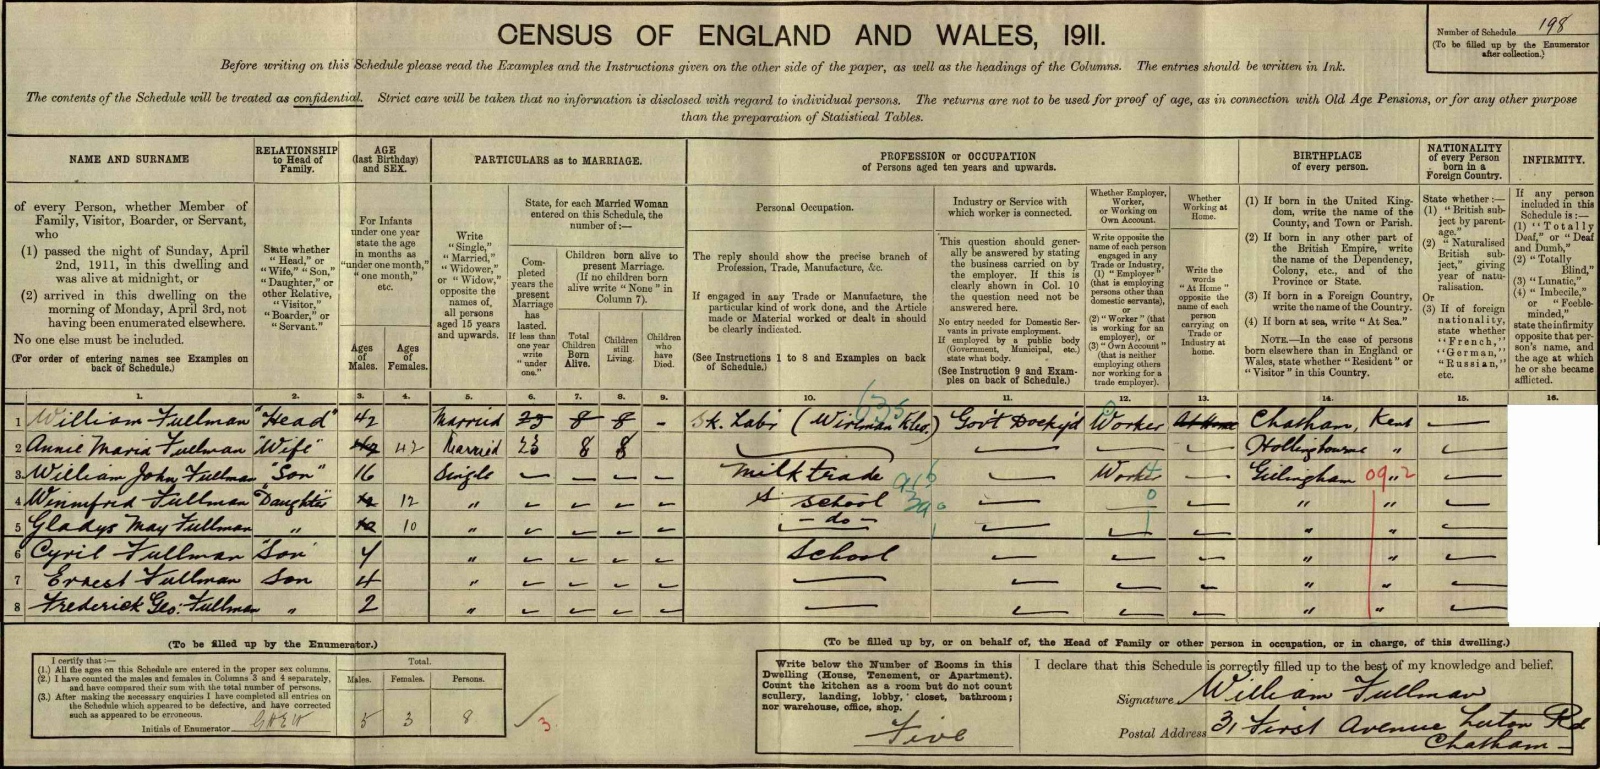 CENSUS OF ENGLAND AND WALES, 1911.
Number of Schedule 198
(To be filled up by the Enumerator
after collection.)
Before writing on this Schedule please read the Examples and the Instructions given on the other side of the paper, as well as the headings of the Columns. The entries should be written in Ink.
The contents of the Schedule will be treated as confidential. Strict care will be taken that no information is disclosed with regard to individual persons. The returns are not to be used for proof of age, as in connection with Old Age Pensions, or for any other purpose
than the preparation of Statistical Tables.
NAME AND SURNAME
of every Person, whether Member of
Family, Visitor, Boarder, or Servant,
who
(1) passed the night of Sunday, April
2nd, 1911, in this dwelling and
was alive at midnight, or
(2) arrived in this dwelling on the
morning of Monday, April 3rd, not
having been enumerated elsewhere.
No one else must be included.
(For order of entering names see Examples on
back of Schedule.)
RELATIONSHIP
to Head of
Family.
State whether
"Head," or
"Wife," "Son,"
"Daughter," or
other Relative,
"Visitor,"
"Boarder," or
"Servant."
AGE
(last Birthday)
and SEX.
For Infants
under one year
state the age
in months as
"under one month,"
"one month,"
etc.
Ages
of
Males.
Ages
of
Females.
PARTICULARS as to MARRIAGE.
Write
"Single,"
"Married,"
"Widower,"
or "Widow,"
opposite the
names of
all persons
aged 15 years
and upwards.
State, for each Married Woman
entered on this Schedule, the
number of:—
Completed
years the
present
Marriage
has
lasted.
If less than
one year
write
"under
one."
Children born alive to
present Marriage.
(If no children born
alive write "None" in
Column 7).
Total
Children
Born
Alive.
Children
still
Living.
Children
who
have
Died.
PROFESSION or OCCUPATION
of Persons aged ten years and upwards.
Personal Occupation.
The reply should show the precise branch of
Profession, Trade, Manufacture, &c.
If engaged in any Trade or Manufacture, the
particular kind of work done, and the Article
made or Material worked or dealt in should
be clearly indicated.
(See Instructions 1 to 8 and Examples on back
of Schedule.)
Industry or Service with
which worker is connected.
This question should generally
be answered by stating
the business carried on by
the employer. If this is
clearly shown in Col. 10
the question need not be
answered here.
No entry needed for Domestic Servants
in private employment.
If employed by a public body
(Government, Municipal, etc.)
state what body.
(See Instruction 9 and Examples
on back of Schedule.)
Whether Employer,
Worker,
or Working on
Own Account.
Write opposite the
name of each person
engaged in any
Trade or Industry,
(1) "Employer"
(that is employing
persons other than
domestic servants),
or
(2) "Worker" (that
is working for an
employer), or
(3) "Own Account"
(that is neither
employing others
nor working for a
trade employer).
Whether
Working at
Home.
Write the
words
"At Home"
opposite the
name of each
person
carrying on
Trade or
Industry at
home.
BIRTHPLACE
of every person.
(1) If born in the United Kingdom,
write the name of the
County, and Town or Parish.
(2) If born in any other part of
the British Empire, write
the name of the Dependency,
Colony, etc., and of the
Province or State.
(3) If born in a Foreign Country,
write the name of the Country.
(4) If born at sea, write "At Sea."
NOTE.—In the case of persons
born elsewhere than in England or
Wales, state whether "Resident" or
"Visitor" in this Country.
NATIONALITY
of every Person
born in a
Foreign Country.
State whether:—
(1) "British subject
by parentage."
(2) "Naturalised
British
subject," giving
year of naturalisation.
Or
(3) If of foreign
nationality,
state whether
"French,"
"German,"
"Russian,"
etc.
INFIRMITY.
If any person
included in this
Schedule is:—
(1) "Totally
Deaf," or "Deaf
and Dumb,"
(2) "Totally
Blind,"
(3) "Lunatic,"
(4) "Imbecile,"
or "Feeble-minded,"
state the infirmity
opposite that person's
name, and
the age at which
he or she became
afflicted.
1. 2. 3. 4. 5. 6. 7. 8. 9. 10. 11. 12. 13. 14. 15. 16.
1 William Fullman "Head" 42 Married 23 8 8 – Sk. Labr (Wireman Elec.) Gov't Docky'd Worker At Home Chatham, Kent
2 Annie Maria Fullman "Wife" 42 Married 23 8 8 Hollingbourne "
3 William John Fullman "Son" 16 Single Milk trade Worker Gillingham 09 " 2
4 Winnifred Fullman "Daughter" 12 " School " "
5 Gladys May Fullman " 10 " – do – " "
6 Cyril Fullman "Son" 7 " School " "
7 Ernest Fullman Son 4 " " "
8 Frederick Geo: Fullman " 2 " " "
(To be filled up by the Enumerator.)
I certify that:—
(1.) All the ages on this Schedule are entered in the proper sex columns.
(2.) I have counted the males and females in Columns 3 and 4 separately,
and have compared their sum with the total number of persons.
(3.) After making the necessary enquiries I have completed all entries on
the Schedule which appeared to be defective, and have corrected
such as appeared to be erroneous.
Initials of Enumerator
Total.
Males. Females. Persons.
5 3 8
3.
(To be filled up by, or on behalf of, the Head of Family or other person in occupation, or in charge, of this dwelling.)
Write below the Number of Rooms in this
Dwelling (House, Tenement, or Apartment).
Count the kitchen as a room but do not count
scullery, landing, lobby, closet, bathroom;
nor warehouse, office, shop.
Five
I declare that this Schedule is correctly filled up to the best of my knowledge and belief.
Signature William Fullman
Postal Address 31 First Avenue Luton Rd
Chatham –